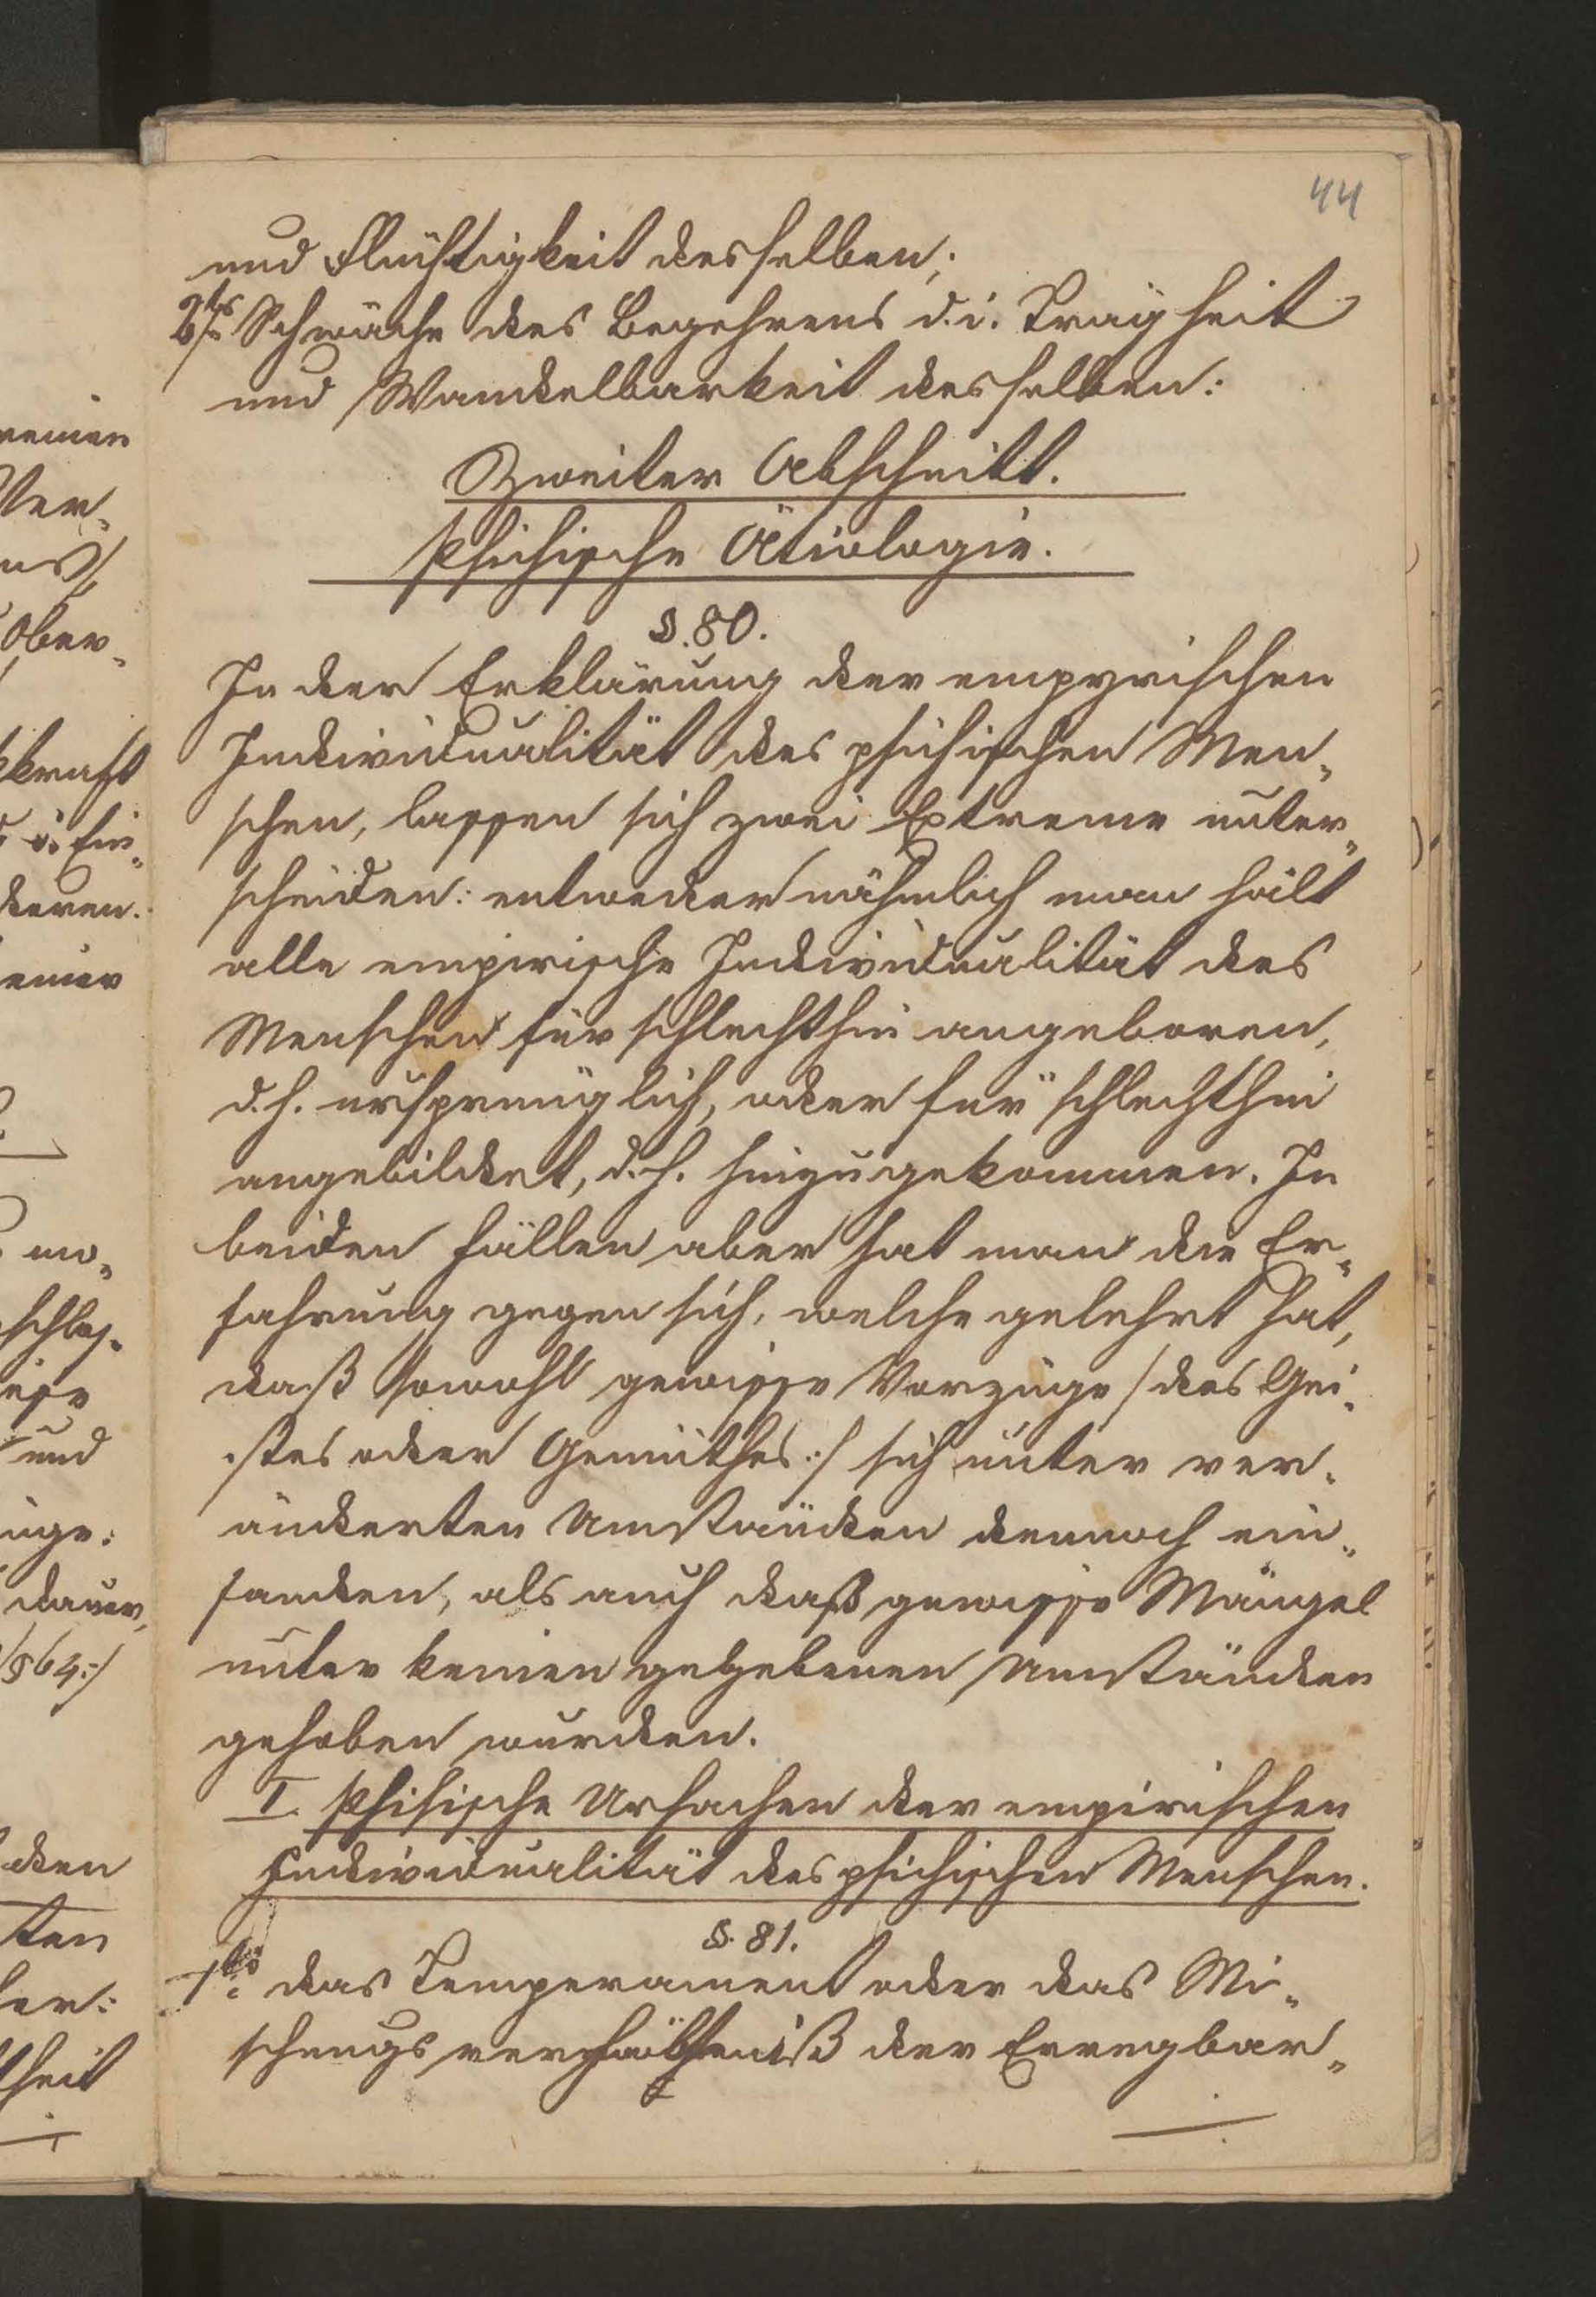 44
und Flüchtigkeit desselben;
2tes Schwäche des Begehrens d. i. Trägheit
und Wandelbarkeit desselben:
Zweiter Abschnitt.
Psichische Ätiologie.
§. 80.
In der Erklärung der empyrischen
Individualität des psichischen Men„
schen, lassen sich zwei Extreme unter„
scheiden: entweder nähmlich man hält
alle empirische Individualität des
Menschen für schlechthin angeboren,
d. h. ursprünglich, oder für schlechthin
angebildet, d. h. hinzugekommen. In
beiden Fällen aber hat man die Er„
fahrung gegen sich, welche gelehrt hat,
daß sowohl gewisse Vorzüge /des Gei„
stes oder Gemüthes:/ sich unter ver„
änderten Umständen dennoch ein„
fanden, als auch daß gewisse Mängel
unter keinen gegebenen Umständen
gehoben wurden.
I. Phisische Ursachen der empirischen
Individualität des psichischen Menschen.
§. 81.
1tes das Temperament oder das Mi„
schungsverhältniß der Erregbar„